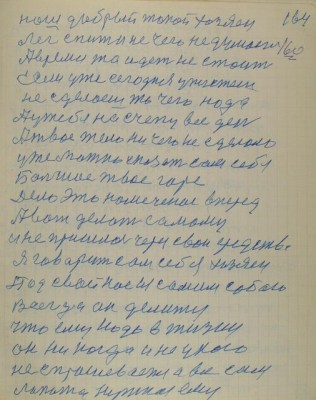 наш добрый такой хозяен 164
Лег спит и не чего не думоети /60
Авремя та идет не стоит
Если уже сегодня ужотеш
не сделоеш то чего нада
А у тебя на счету все дет
А твое тело ни чего не сделоло
уже можно сказат сам себя
Болшое твое горе
Дело Это помечоное вперед
А вот делат самому
и не пришлос чериз свои средств.
Я говарит сам себя хозяен
Под свой нос и самим собою
Всегда он делиту
что ему нодо в жизни
он ни когда и не укого
не спрошеваета все сам
нужное ему